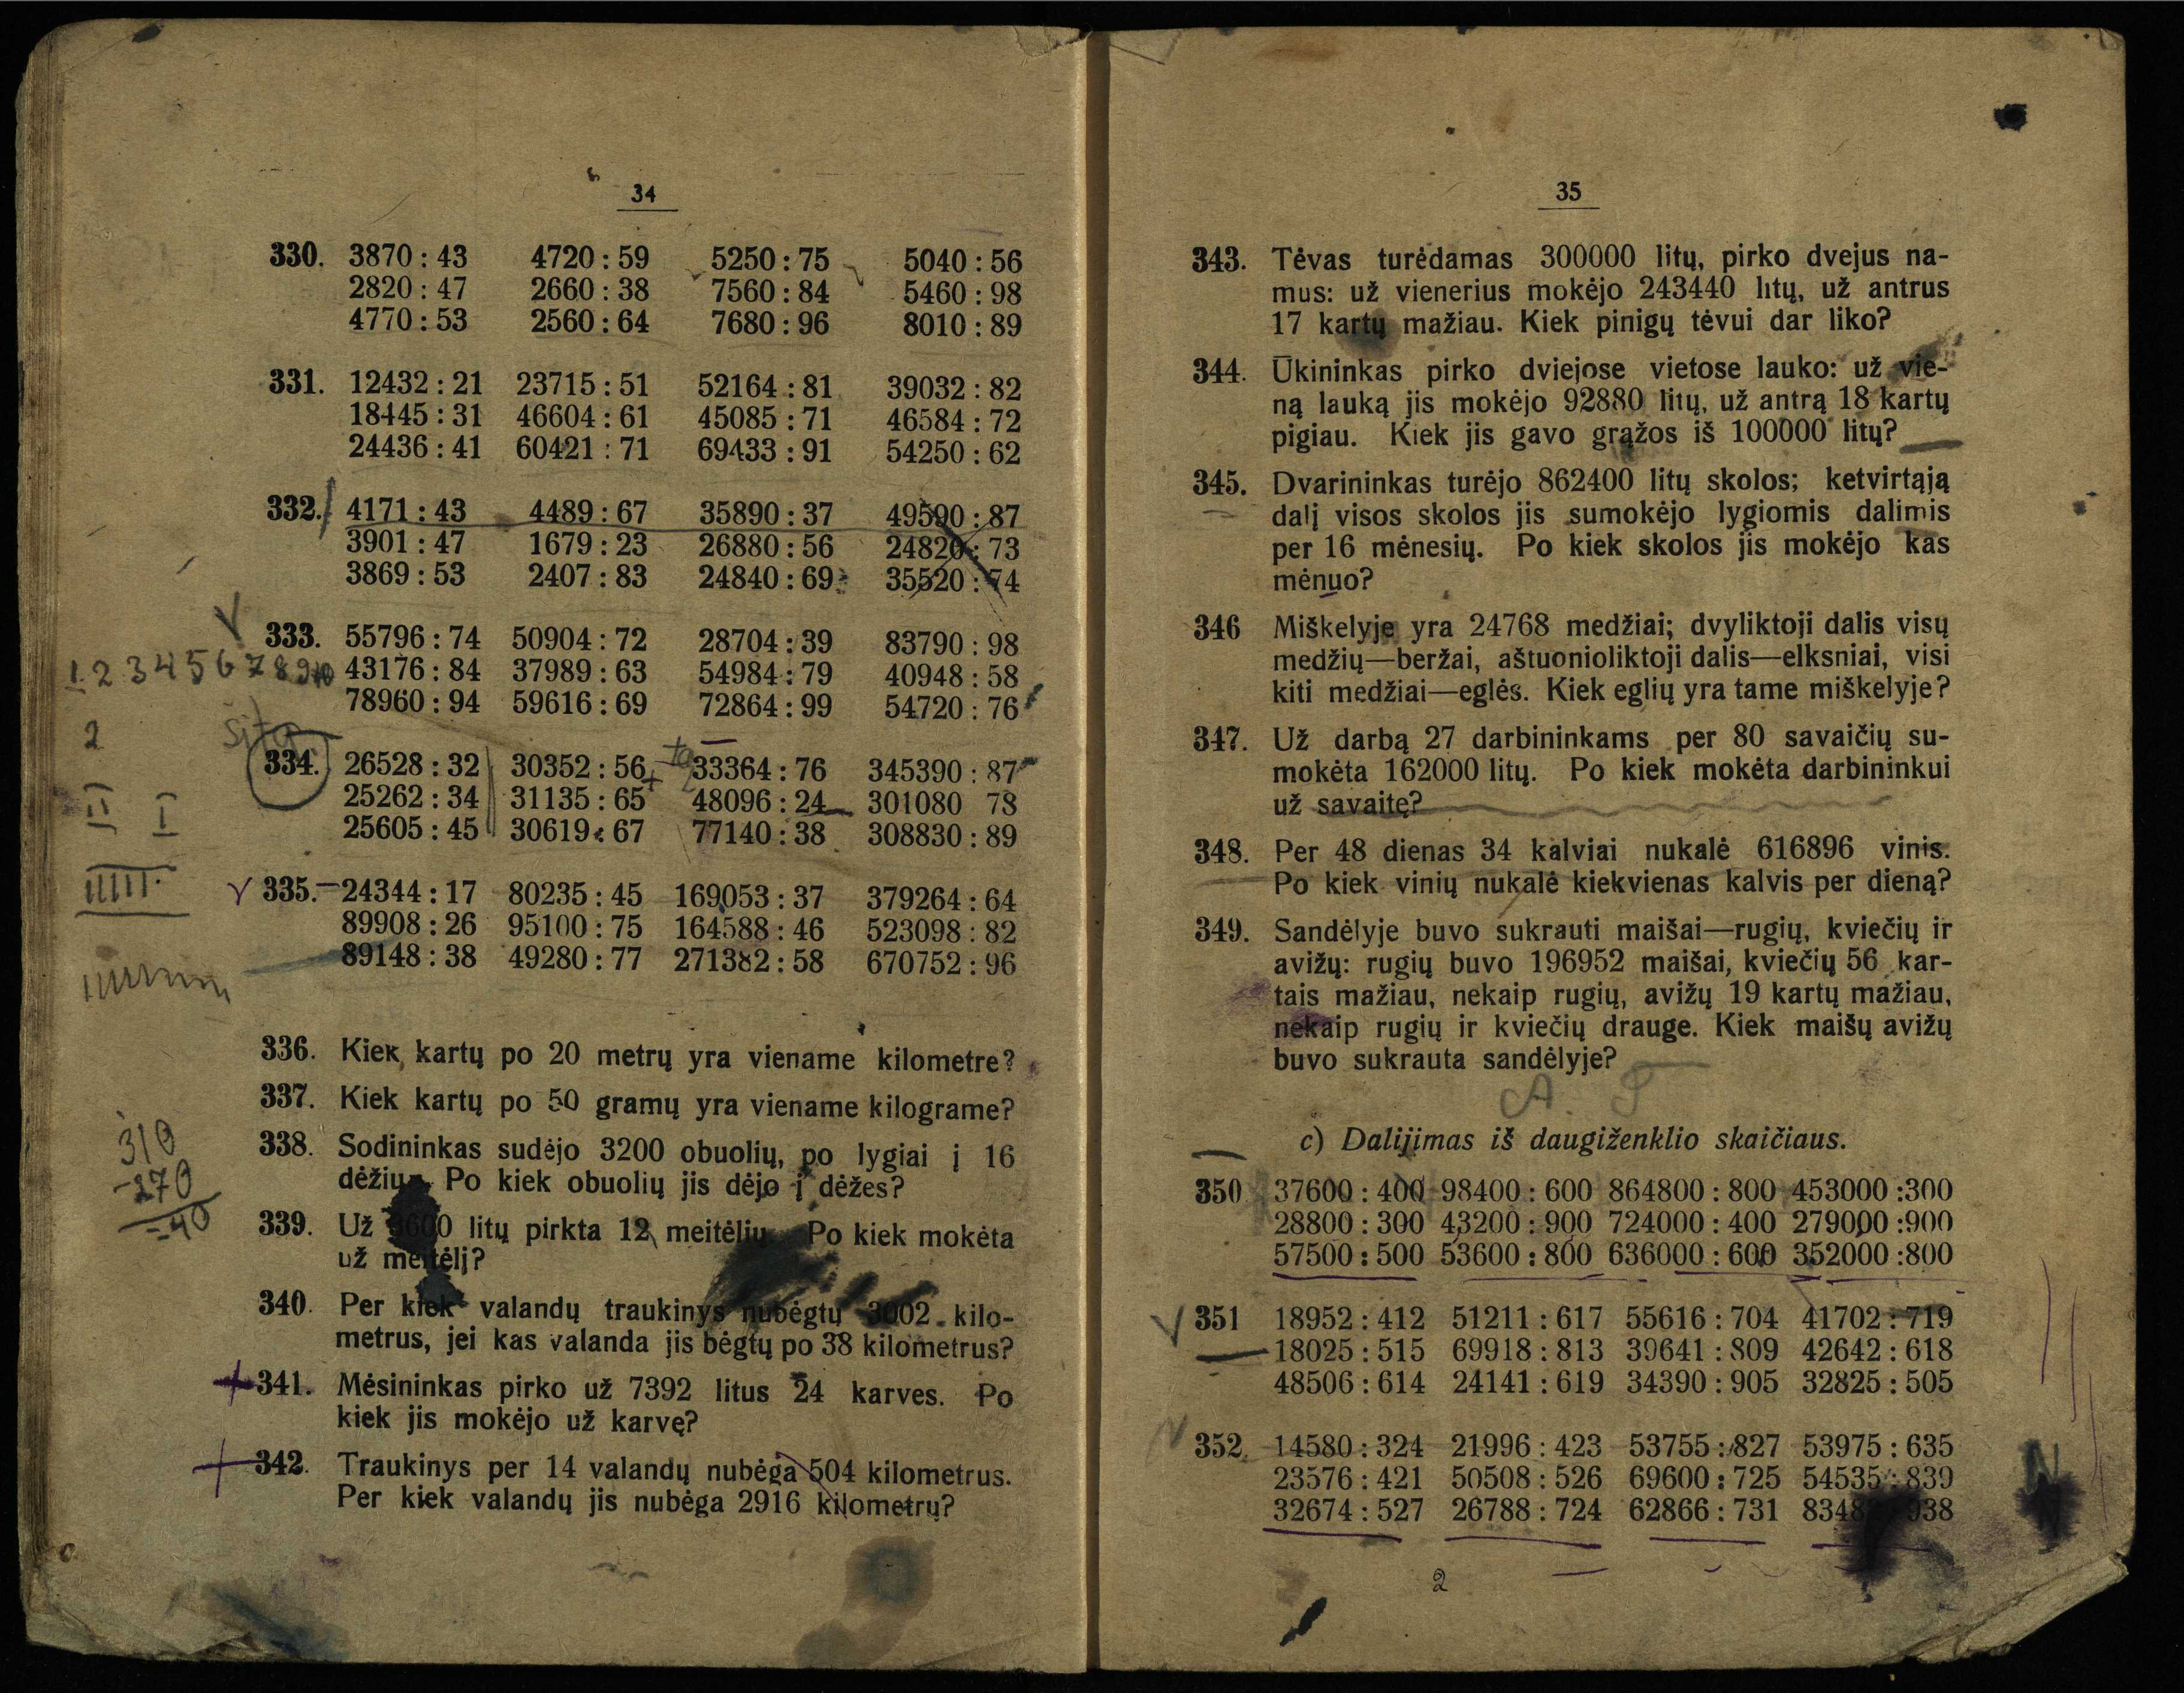 34
330. 3870 : 43 4720 : 59 5250 : 75 5040 : 56
2820 : 47 2660 : 38 7560 : 84 5460 : 98
4770 : 53 2560 : 64 7680 : 96 8010 : 89
331. 12432 : 21 23715 : 51 52164 : 81 39032 : 82
18445 : 31 46604 : 61 45085 : 71 46584 : 72
24436 : 41 60421 : 71 69433 : 91 54250 : 62
332. 4171 : 43 4489 : 67 35890 : 37 49590 : 87
3901 : 47 1679 : 23 26880 : 56 24820 : 73
3869 : 53 2407 : 83 24840 : 69 35520 : 74
333. 55796 : 74 50904 : 72 28704 : 39 83790 : 98
1 2 3 4 5 6 7 8 9 10 43176 : 84 37989 : 63 54984 : 79 40948 : 58
78960 : 94 59616 : 69 72864 : 99 54720 : 76
2
334. 26528 : 32 30352 : 56 33364 : 76 345390 : 87
25262 : 34 31135 : 65 48096 : 24 301080 78
II I
25605 : 45 30619 : 67 77140 : 38 308830 : 89
335. 24344 : 17 80235 : 45 169053 : 37 379264 : 64
89908 : 26 95100 : 75 164588 : 46 523098 : 82
89148 : 38 49280 : 77 271382 : 58 670752 : 96
336. Kiek kartų po 20 metrų yra viename kilometre?
337. Kiek kartų po 50 gramų yra viename kilograme?
310
-270
=40
338. Sodininkas sudėjo 3200 obuolių, po lygiai į 16
dėžių. Po kiek obuolių jis dėjo į dėžes?
339. Už 600 litų pirkta 12 meitėlių Po kiek mokėta
už meitėlį?
340. Per kiek valandų traukinys nubėgtų 3002 kilo-
metrus, jei kas valanda jis bėgtų po 38 kilometrus?
341. Mėsininkas pirko už 7392 litus 24 karves. Po
kiek jis mokėjo už karvę?
342. Traukinys per 14 valandų nubėga 504 kilometrus.
Per kiek valandų jis nubėga 2916 kilometrų?
35
343. Tėvas turėdamas 300000 litų, pirko dvejus na-
mus: už vienerius mokėjo 243440 litų, už antrus
17 kartų mažiau. Kiek pinigų tėvui dar liko?
344. Ūkininkas pirko dviejose vietose lauko: už vie-
ną lauką jis mokėjo 92880 litų, už antrą 18 kartų
pigiau. Kiek jis gavo grąžos iš 100000 litų?
345. Dvarininkas turėjo 862400 litų skolos; ketvirtąją
dalį visos skolos jis sumokėjo lygiomis dalimis
per 16 mėnesių. Po kiek skolos jis mokėjo kas
mėnuo?
346 Miškelyje yra 24768 medžiai; dvyliktoji dalis visų
medžių—beržai, aštuonioliktoji dalis—elksniai, visi
kiti medžiai—eglės. Kiek eglių yra tame miškelyje?
347. Už darbą 27 darbininkams per 80 savaičių su-
mokėta 162000 litų. Po kiek mokėta darbininkui
už savaitę?
348. Per 48 dienas 34 kalviai nukalė 616896 vinis.
Po kiek vinių nukalė kiekvienas kalvis per dieną?
349. Sandėlyje buvo sukrauti maišai—rugių, kviečių ir
avižų: rugių buvo 196952 maišai, kviečių 56 kar-
tais mažiau, nekaip rugių, avižų 19 kartų mažiau,
nekaip rugių ir kviečių drauge. Kiek maišų avižų
buvo sukrauta sandėlyje?
c) Dalijimas iš daugiženklio skaičiaus.
350 37600 : 400 98400 : 600 864800 : 800 453000 :300
28800 : 300 43200 : 900 724000 : 400 279000 :900
57500 : 500 53600 : 800 636000 : 600 352000 :800
351 18952 : 412 51211 : 617 55616 : 704 41702 : 719
18025 : 515 69918 : 813 39641 : 809 42642 : 618
48506 : 614 24141 : 619 34390 : 905 32825 : 505
352. 14580 : 324 21996 : 423 53755 : 827 53975 : 635
23576 : 421 50508 : 526 69600 : 725 54535 : 839
32674 : 527 26788 : 724 62866 : 731 938
2